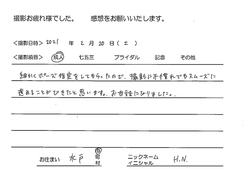 撮影お疲れ様でした。 感想をお願いいたします。
<撮影日時> 2021 年 2 月 20 日 ( 土 )
<撮影項目> 成人 七五三 ブライダル 記念 その他
細かくポーズ指定をしてもらったので、撮影に不慣れでもスムーズに
進めることができたと思います。お世話になりました。
お住まい 水戸 市 町 村 ニックネーム イニシャル H.N.